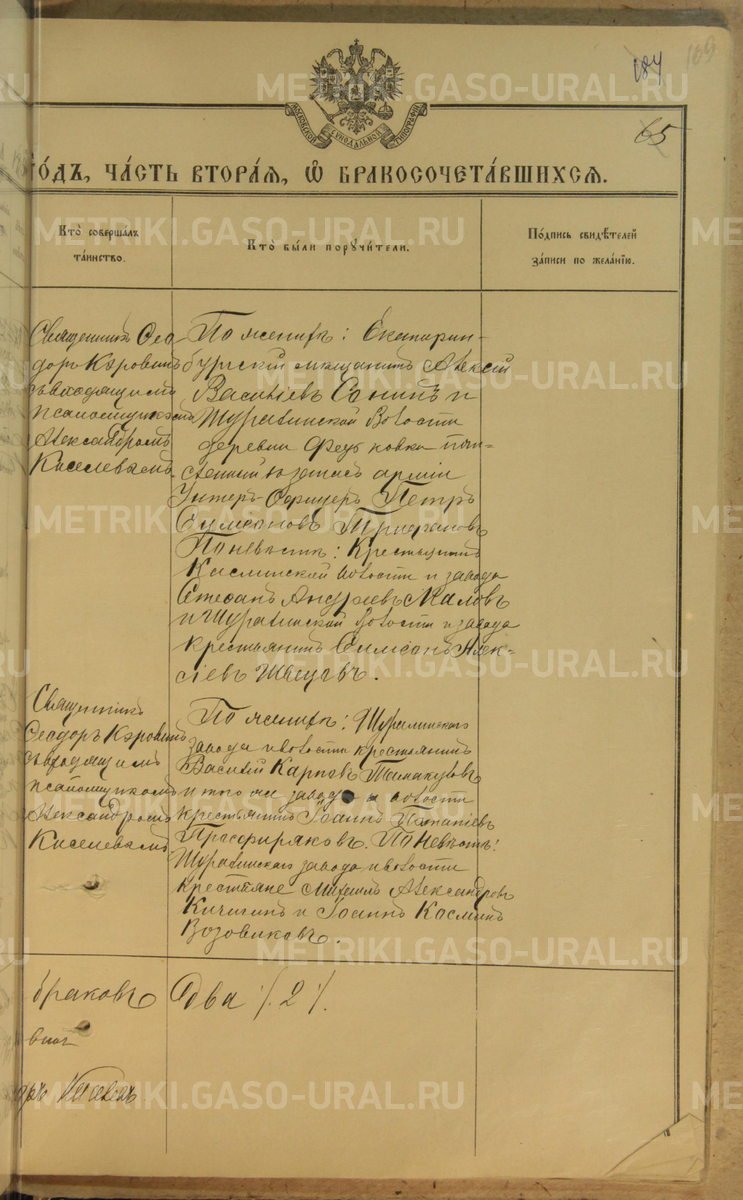 184
189
65
МОСКОВСКОЙ СѴНОДАЛЬНОЙ ТИПОГРАФІИ
ГО́ДЪ, ЧА́СТЬ ВТОРА́Я, Ѡ҆ БРАКОСОЧЕТА́ВШИХСЯ.
Кто̀ соверша́лъ
та́инство.
Кто̀ бы́ли порꙋчи́тели.
По́дпись свидѣ́телей
за́писи по жела́нїю.
Священникъ Ѳео-
доръ
съ входящимъ
псаломщикомъ
Александромъ
Киселевымъ.
По женихѣ: Екатерин-
бургскій мѣщанинъ Алексій
Васильевъ Санинъ и
Шуралинской волости
деревни
запасъ арміи
Унтеръ-Офицеръ Петръ
Симеоновъ Трифановъ
По невѣстѣ: Крестьянинъ
Каслинской волости и завода
Стефанъ Андреевъ Маловъ
и Шуралинской волости и завода
крестьянинъ Симеонъ Алек-
сѣевъ
Священникъ
Ѳеодоръ
съ входящимъ
псаломщикомъ
Александромъ
Киселевымъ
По женихѣ: Шуралинскаго
завода и волости крестьянинъ
Василій Карповъ
и того же завода и волости
крестьянинъ Іоаннъ Потапіевъ
По невѣстѣ:
Шуралинскаго завода и волости
крестьяне Михаилъ Александровъ
Кичигинъ и Іоаннъ Косминъ
Возовиковъ.
браковъ
Два /. 2 /.
METRIKI.GASO-URAL.RU